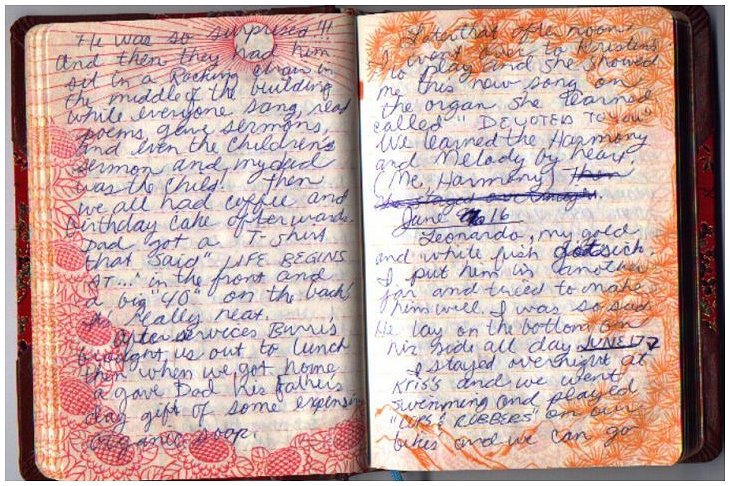 He was so surprised!!!
and then they had him
sit in a Rocking chair in
the middle of the building
while everyone sang, read
poems, gave sermons,
and even the Children's
sermon and my dad
was the child! Then
we all had coffee and
birthday cake afterwards.
Dad got a T-shirt
that said "LIFE BEGINS
AT..." in the front and
a big "40" on the back!
really neat.
After services Burris
brought us out to lunch
then when we got home
a gave Dad his Fathers
day gift of some expensive
organic soap.
Later that afternoon
I went over to Kirsten's
to play and she showed
me this new song on
the organ she learned
called "DEVOTED TO YOU"
We learned the Harmony
and Melody by heart.
(Me, Harmony)
June 16
Leonardo, my gold
and white fish got sick.
I put him in another
jar and tried to make
him well. I was so sad
He lay on the bottom on
his side all day JUNE 17
I stayed overnight at
KRIS's and we went
swimming and played
"COPS & ROBBERS" on our
bikes and we can go